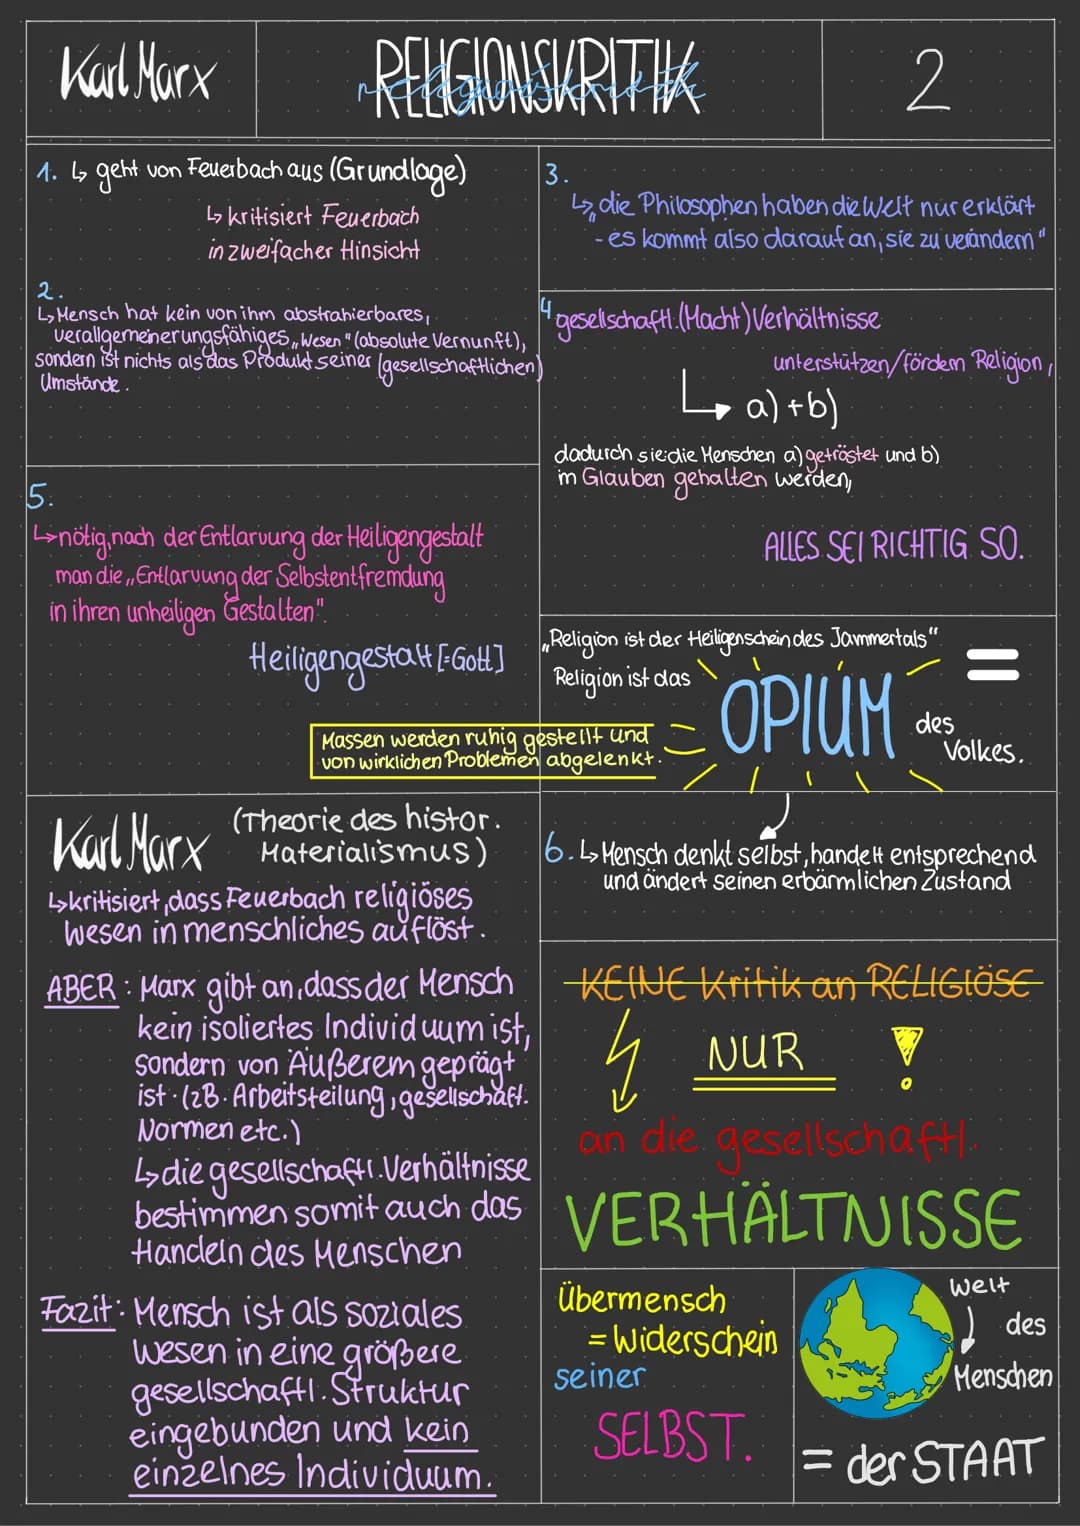 Karl Marx
RELIGIONSKRITIK
religionskritik
2
1. ↳ geht von Feuerbach aus (Grundlage)
↳ kritisiert Feuerbach
in zweifacher Hinsicht
2.
↳ Mensch hat kein von ihm abstrahierbares,
verallgemeinerungsfähiges „Wesen" (absolute Vernunft),
sondern ist nichts als das Produkt seiner (gesellschaftlichen)
Umstände.
3.
↳ „die Philosophen haben die Welt nur erklärt
- es kommt also darauf an, sie zu verändern"
4 gesellschaftl. (Macht) Verhältnisse
unterstützen/fördern Religion,
↳ a) + b)
dadurch sie: die Menschen a) getröstet und b)
im Glauben gehalten werden,
ALLES SEI RICHTIG SO.
5.
↳ nötig, nach der Entlarvung der Heiligengestalt
man die „Entlarvung der Selbstentfremdung
in ihren unheiligen Gestalten".
Heiligengestalt [=Gott]
„Religion ist der Heiligenschein des Jammertals"
=
Religion ist das
OPIUM
des
Volkes.
Massen werden ruhig gestellt und
von wirklichen Problemen abgelenkt.
Karl Marx
(Theorie des histor.
Materialismus)
↳ kritisiert, dass Feuerbach religiöses
Wesen in menschliches auflöst.
ABER: Marx gibt an, dass der Mensch
kein isoliertes Individuum ist,
sondern von Äußerem geprägt
ist. (zB. Arbeitsteilung, gesellschaft.
Normen etc.)
↳ die gesellschaftl. Verhältnisse
bestimmen somit auch das
Handeln des Menschen
Fazit: Mensch ist als soziales
Wesen in eine größere
gesellschaftl. Struktur
eingebunden und kein
einzelnes Individuum.
6. ↳ Mensch denkt selbst, handelt entsprechend
und ändert seinen erbärmlichen Zustand
KEINE Kritik an RELIGIÖSE
NUR !
an die gesellschaftl.
VERHÄLTNISSE
Übermensch
= Widerschein
seiner
SELBST.
Welt
des
Menschen
= der STAAT